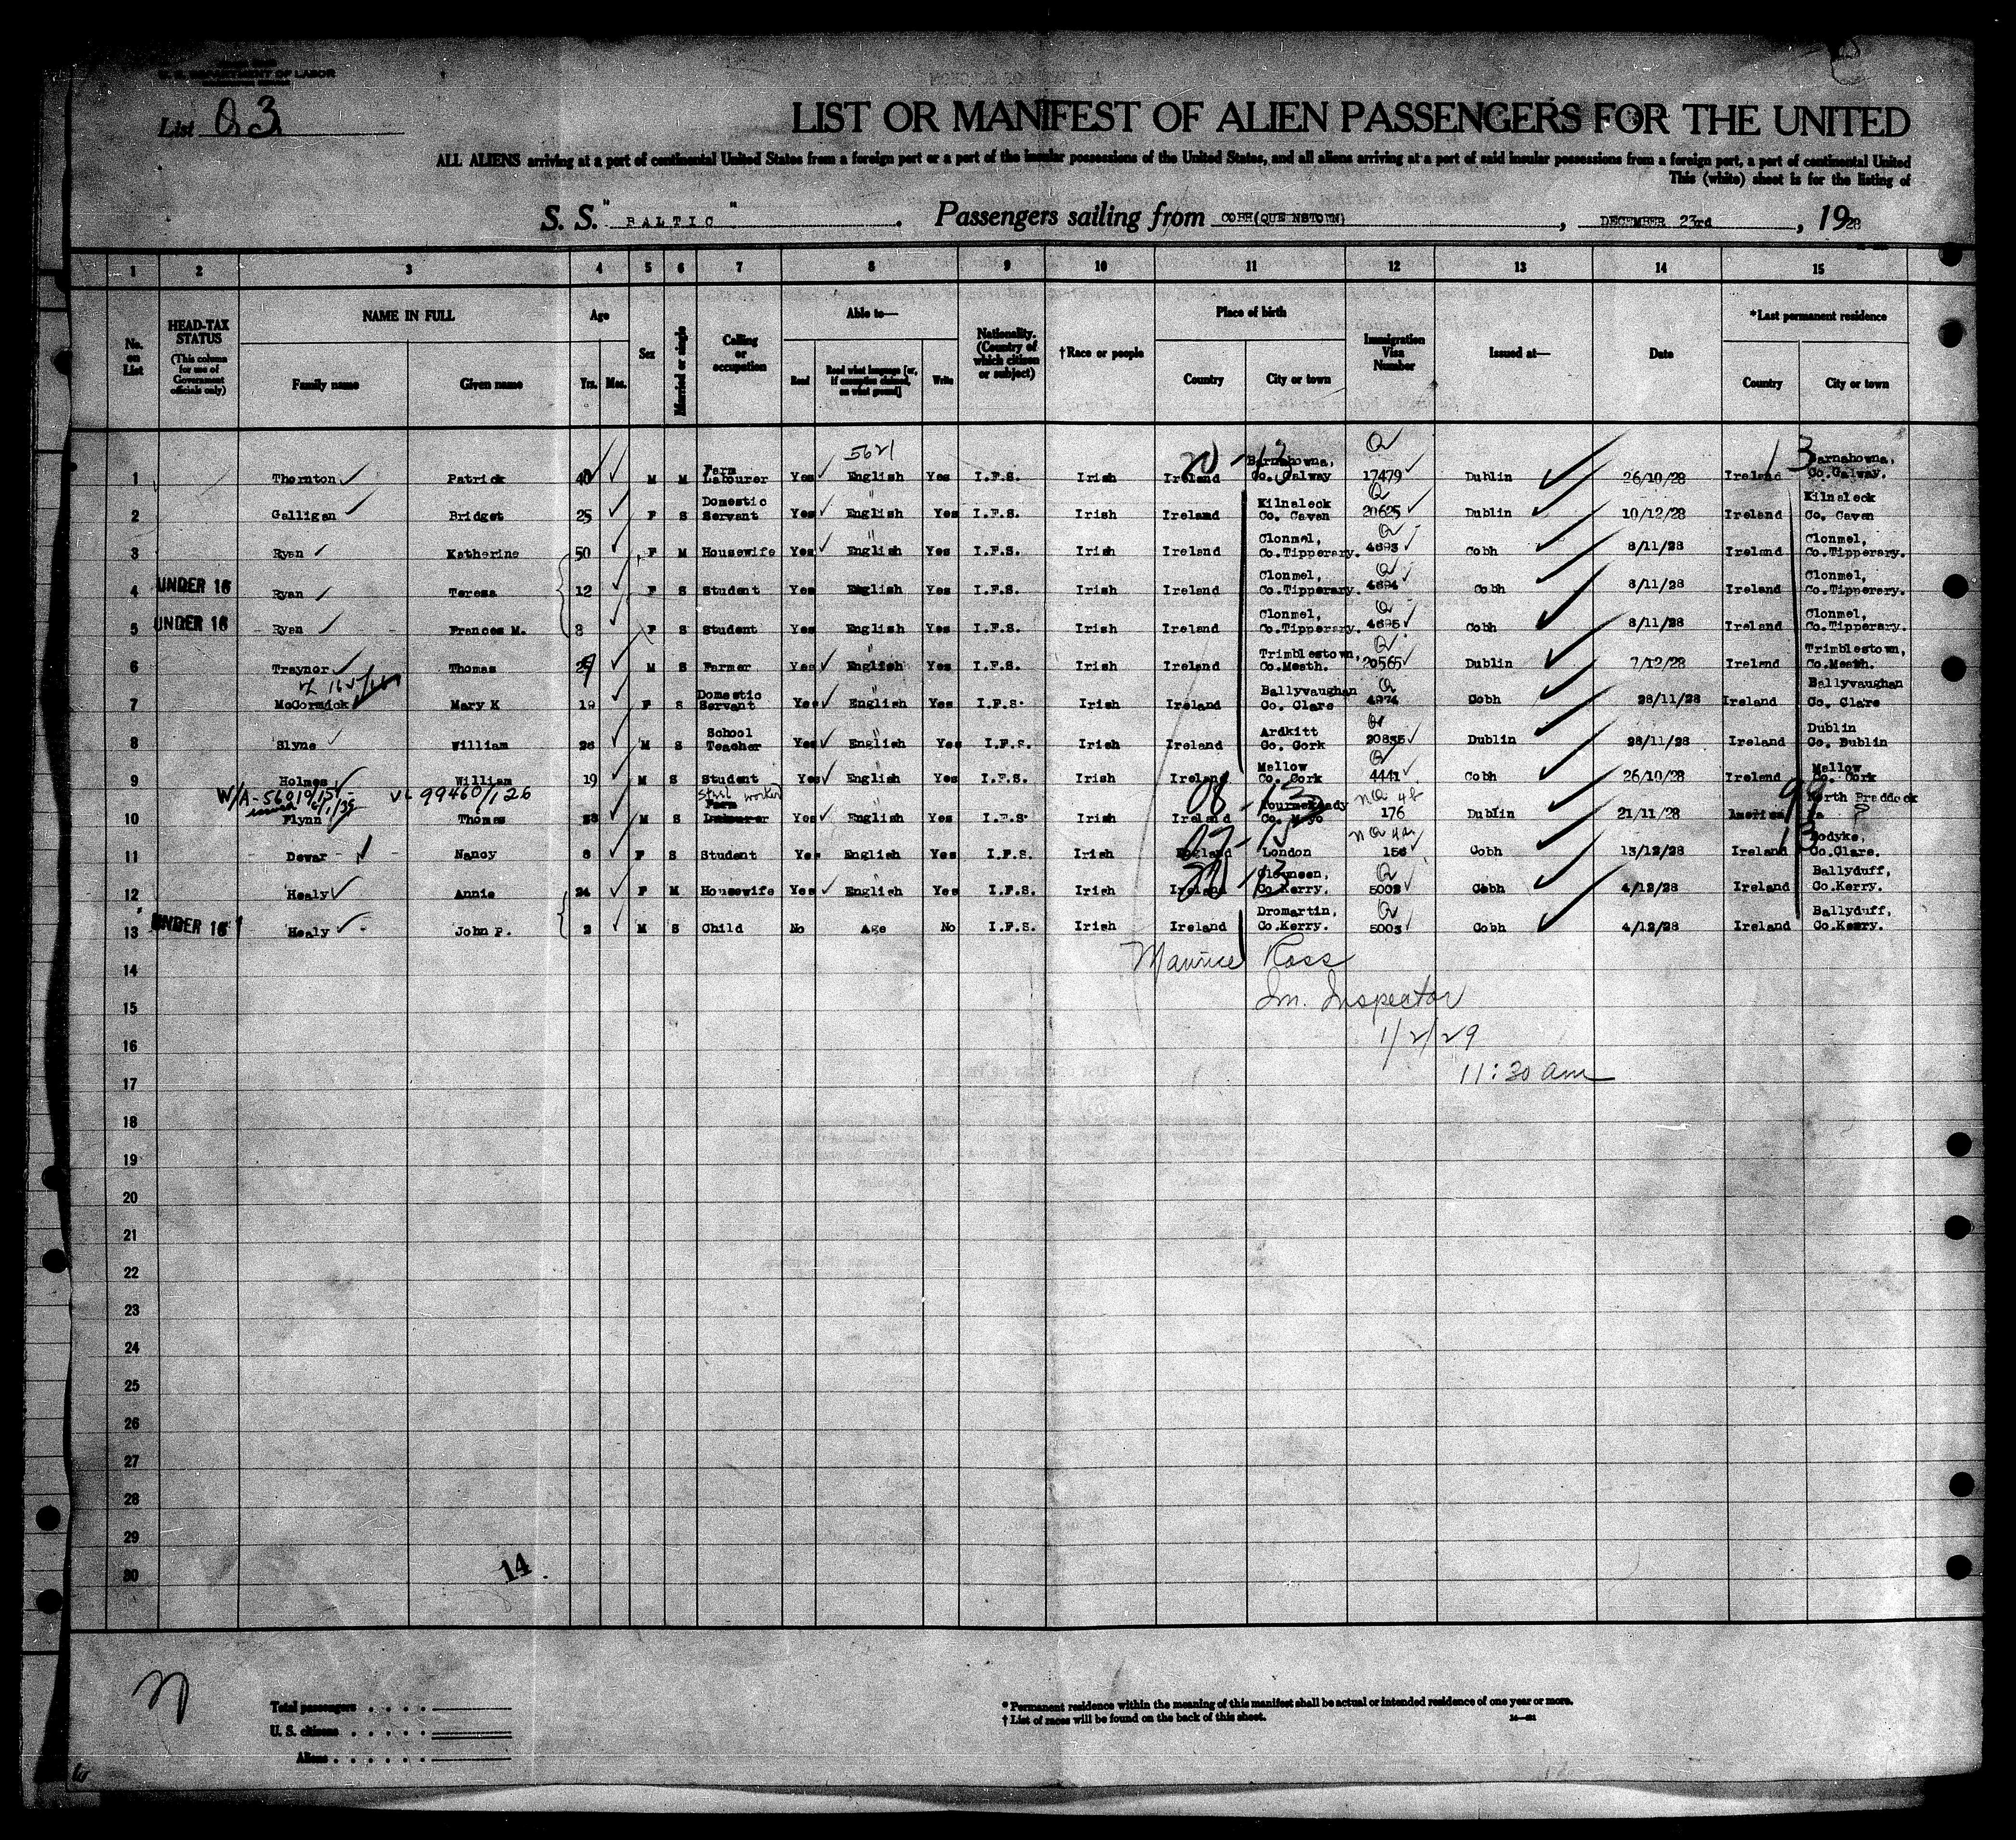 U. S. DEPARTMENT OF LABOR
List Q3
LIST OR MANIFEST OF ALIEN PASSENGERS FOR THE UNITED
ALL ALIENS arriving at a port of continental United States from a foreign port or a port of the insular possessions of the United States, and all aliens arriving at a port of said insular possessions from a foreign port, a port of continental United
This (white) sheet is for the listing of
S. S. "BALTIC". Passengers sailing from COBH(QUEENSTOWN), DECEMBER 23rd, 1928
1 2 3 4 5 6 7 8 9 10 11 12 13 14 15
No. on List
HEAD-TAX STATUS (This column for use of Government officials only)
NAME IN FULL Family name Given name
Age Yrs. Mos.
Sex
Married or single
Calling or occupation
Able to— Read Read what language [or, if exemption claimed, on what ground] Write
Nationality. (Country of which citizen or subject)
†Race or people
Place of birth Country City or town
Immigration Visa Number
Issued at—
Date
*Last permanent residence Country City or town
5621
1 Thornton Patrick 40 M M Farm Labourer Yes English Yes I.F.S. Irish Ireland Barnahowna, Co. Galway 17479 Dublin 26/10/28 Ireland Barnahowna, Co. Galway.
2 Galligan Bridget 25 F S Domestic Servant Yes English Yes I.F.S. Irish Ireland Kilnaleck Co. Cavan 20625 Dublin 10/12/28 Ireland Kilnaleck Co. Cavan
3 Ryan Katherine 50 F M Housewife Yes English Yes I.F.S. Irish Ireland Clonmel, Co.Tipperary. 4693 Cobh 8/11/28 Ireland Clonmel, Co.Tipperary.
4 UNDER 16 Ryan Teresa 12 F S Student Yes English Yes I.F.S. Irish Ireland Clonmel, Co.Tipperary. 4694 Cobh 8/11/28 Ireland Clonmel, Co.Tipperary.
5 UNDER 16 Ryan Frances M. 8 F S Student Yes English Yes I.F.S. Irish Ireland Clonmel, Co.Tipperary. 4695 Cobh 8/11/28 Ireland Clonmel, Co.Tipperary.
6 Traynor Thomas M S Farmer Yes English Yes I.F.S. Irish Ireland Trimblestown, Co.Meath. 20565 Dublin 7/12/28 Ireland Trimblestown, Co.Meath.
7 McCormick Mary K 19 F S Domestic Servant Yes English Yes I.F.S. Irish Ireland Ballyvaughan Co. Clare 4974 Cobh 28/11/28 Ireland Ballyvaughan Co. Clare
8 Slyne William 26 M S School Teacher Yes English Yes I.F.S. Irish Ireland Ardkitt Co. Cork 20835 Dublin 28/11/28 Ireland Dublin Co. Dublin
9 Holmes William 19 M S Student Yes English Yes I.F.S. Irish Ireland Mallow Co. Cork 4441 Cobh 26/10/28 Ireland Mallow Co. Cork
VL 99460/126
10 Flynn Thomas M S Steel worker Farm Labourer Yes English Yes I.F.S. Irish Ireland Tourmakeady Co. Mayo 176 Dublin 21/11/28 America North Braddock Pa
11 Dewar Nancy 8 F S Student Yes English Yes I.F.S. Irish England London 156 Cobh 13/12/28 Ireland Bodyke, Co.Clare.
12 Healy Annie 24 F M Housewife Yes English Yes I.F.S. Irish Ireland Co.Kerry. 5002 Cobh 4/12/28 Ireland Ballyduff, Co.Kerry.
13 UNDER 16 Healy John P. 2 M S Child No Age No I.F.S. Irish Ireland Dromartin, Co.Kerry. 5003 Cobh 4/12/28 Ireland Ballyduff, Co.Kerry.
14 Maurice Ross
15 Im. Inspector
16 1/2/29
17 11:30 am
18
19
20
21
22
23
24
25
26
27
28
29
30
14
Total passengers
U. S. citizens
Aliens
* Permanent residence within the meaning of this manifest shall be actual or intended residence of one year or more.
† List of races will be found on the back of this sheet.